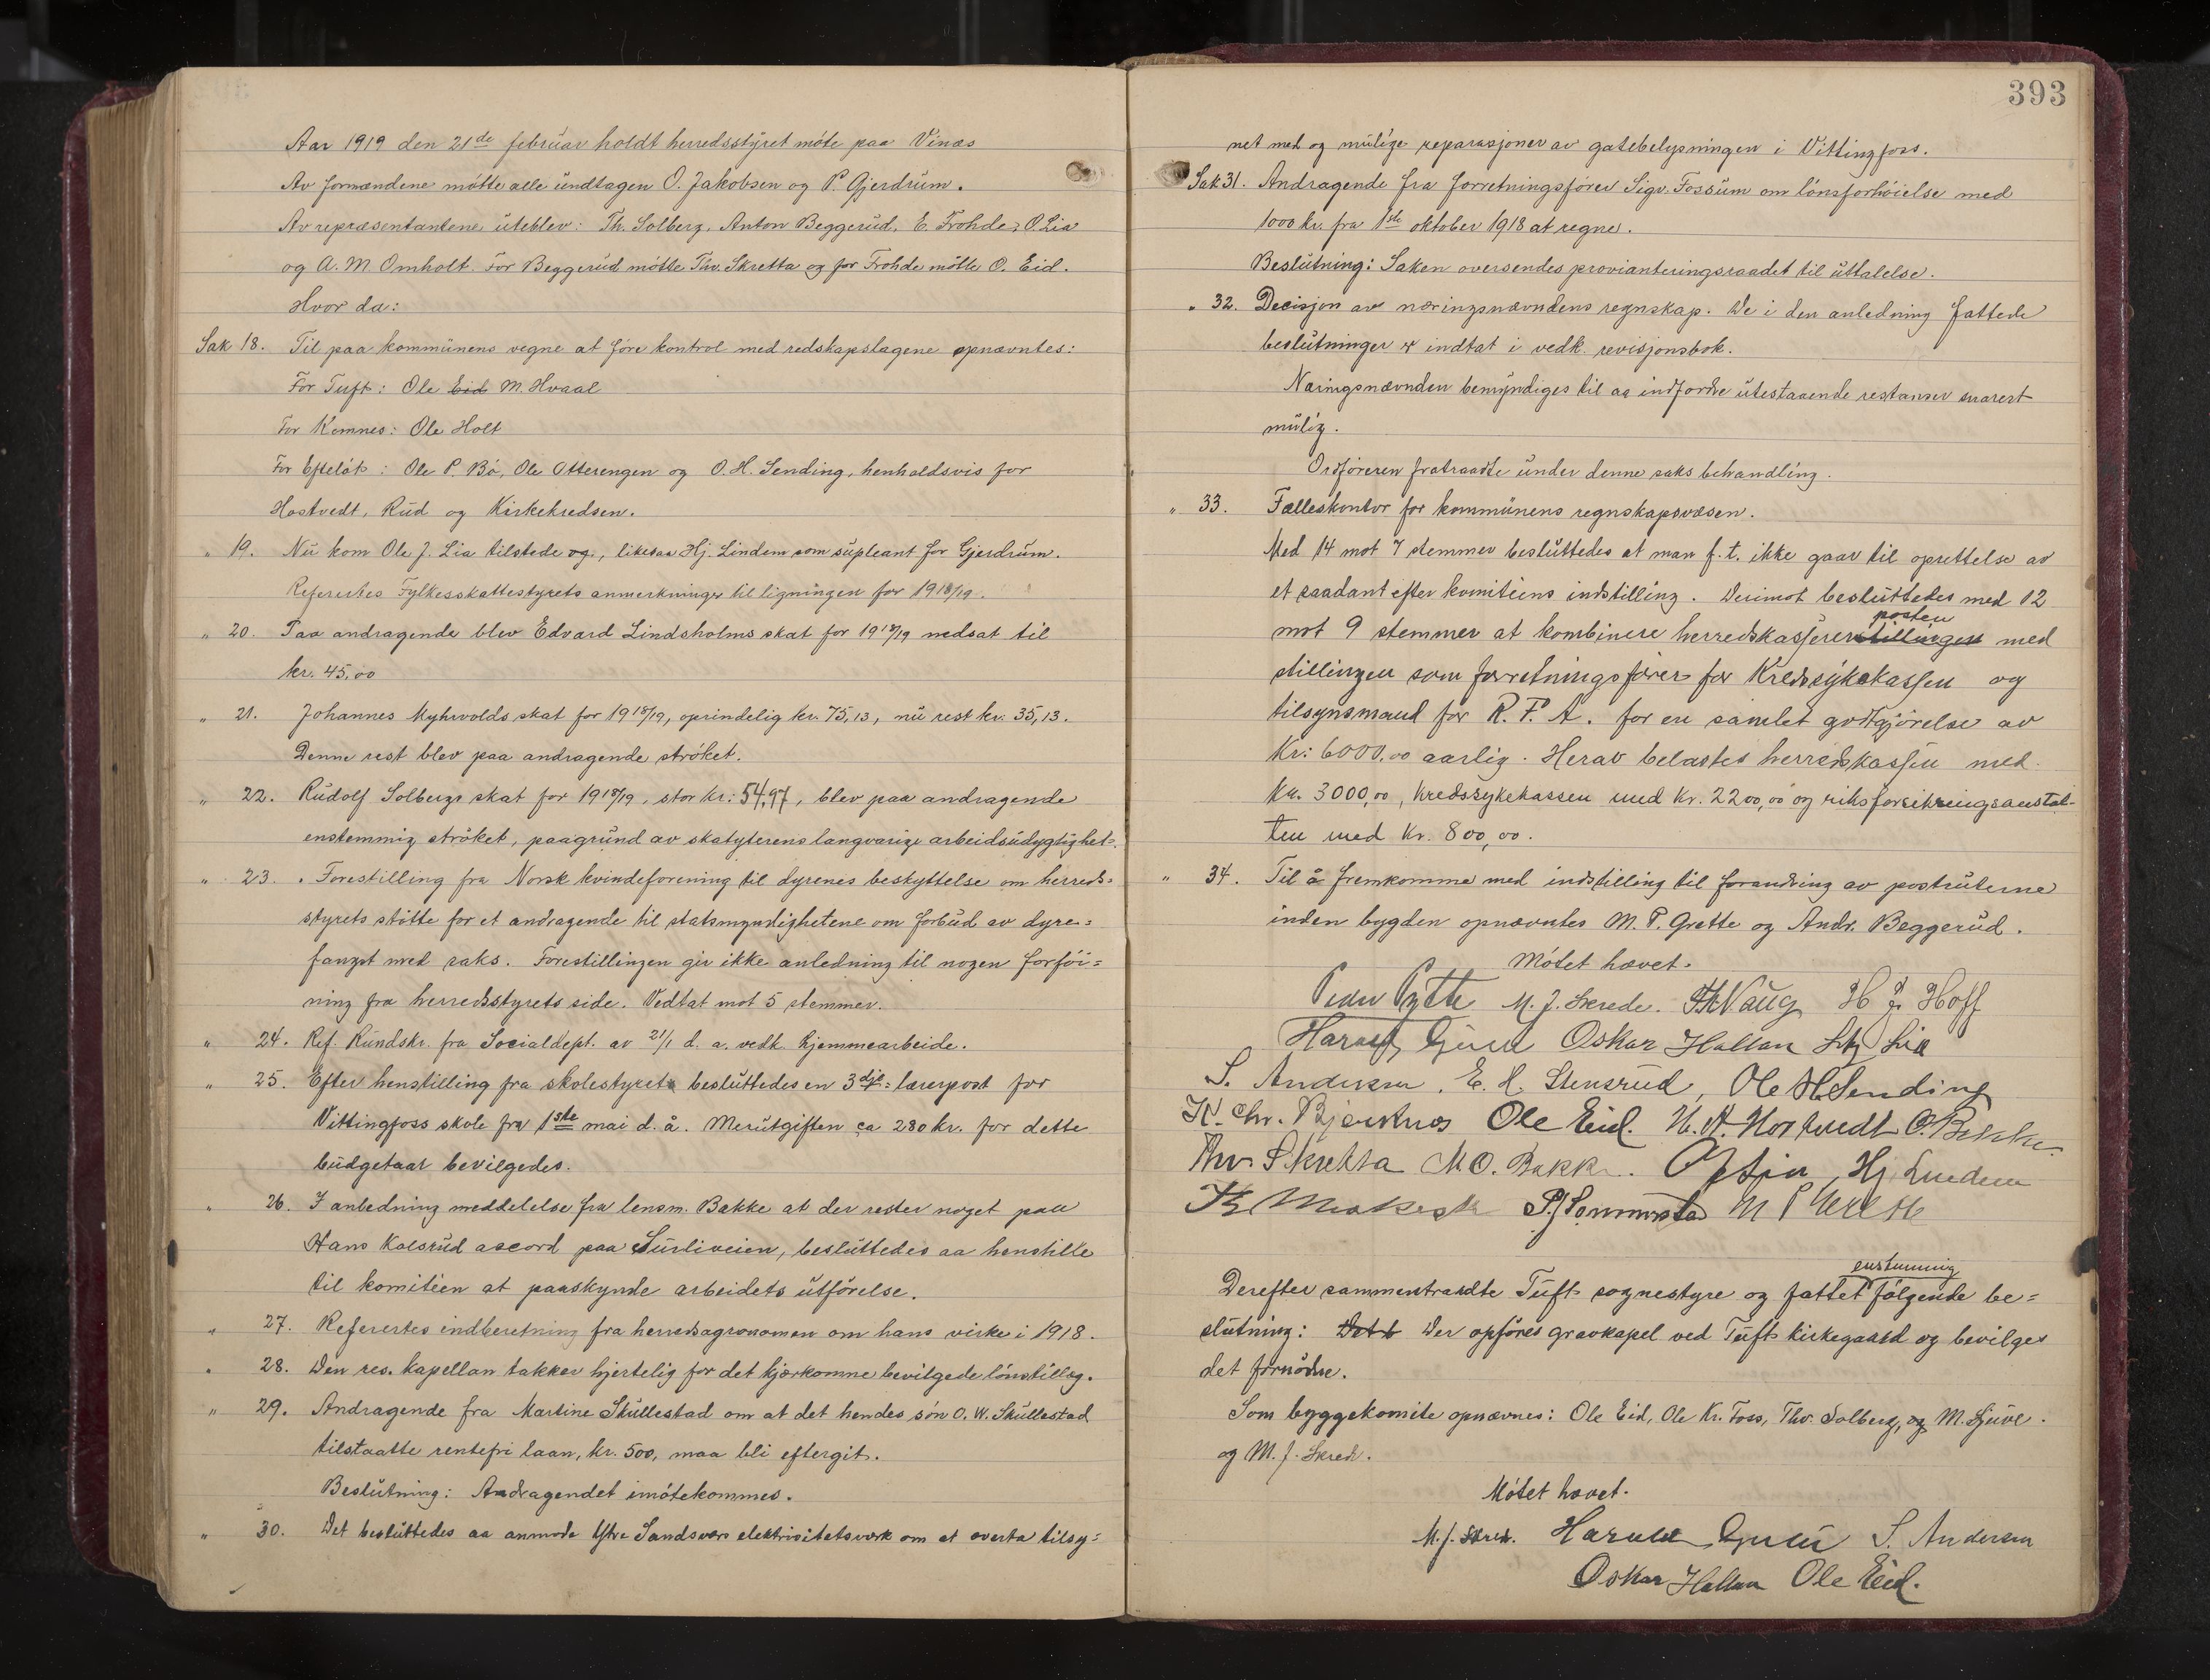 Aar 1919 den 21de februar holdt herredsstyret møte paa Vinæs
Av formændene møtte alle undtagen O. Jakobsen og P. Gjerdrum.
Av repræsentantene uteblev: Th. Solberg, Anton Beggerud, E. Frohde, O. Lia
og A. M. Omholt. For Beggerud møtte Thv. Skretta og for Frohde møtte O. Eid.
Hvor da:
Sak 18. Til paa kommunens vegne at føre kontrol med redskapslagene opnævntes:
For Tuft: Ole Eid M. Hvaal
For Komnes: Ole Holt
For Efteløt: Ole P. Bø, Ole Otterengen og O. H. Sending, henholdsvis for
Hostvedt, Rud og Kirkekredsen.
" 19. Nu kom Ole J. Lia tilstede og, likesaa Hj. Lindem som supleant for Gjerdrum.
Refertes Fylkesskattestyrets anmerkninger til ligningen for 1918/19.
" 20. Paa andragende blev Edvard Lindsholms skat for 1918/19 nedsat til
kr. 45,00
" 21. Johannes Myhrvolds skat for 1918/19, oprindelig kr. 75,13, nu rest kr. 35,13.
Denne rest blev paa andragende strøket.
" 22. Rudolf Solbergs skat for 1918/19, stor kr: 54,97, blev paa andragende
enstemmig strøket, paagrund av skatyterens langvarige arbeidsudygtighet.
" 23. Forestilling fra Norsk kvindeforening til dyrenes beskyttelse om herreds=
styrets støtte for et andragende til statsmyndighetene om forbud av dyre=
fangst med saks. Forestillingen gir ikke anledning til nogen forføi=
ning fra herredsstyrets side. Vedtat mot 5 stemmer.
" 24. Ref. Rundskr. fra Socialdept. av 21/1 d. a. vedk. hjemmearbeide.
" 25. Efter henstilling fra skolestyret besluttedes en 3dje= lærerpost for
Vittingfoss skole fra 1ste mai d. å. Merutgiften ca 280 kr. for dette
budgetaar bevilgedes.
" 26. I anledning meddelelse fra lensm. Bakke at der rester noget paa
Hans Kolsrud accord paa Surliveien, besluttedes aa henstille
til komitéen at paaskynde arbeidets utførelse.
" 27. Refertes indberetning fra herredsagronomen om hans virke i 1918.
" 28. Den res. kapellan takker hjertelig for det kjærkomne bevilgede lønstillæg.
" 29. Andragende fra Martine Skullestad om at det hendes søn O. W. Skullestad
tilstaatte rentefri laan, kr. 500, maa bli eftergit.
Beslutning: Andragendet imøtekommes.
" 30. Det besluttedes aa anmode Ytre Sandsvær elektricitetsverk om at overta tilsy=
393
net med og mulige reparasjoner av gatebelysningen i Vittingfoss.
Sak 31. Andragende fra forretningsfører Sigv. Fossum om lønsforhøielse med
1000 kr. fra 1ste oktober 1918 at regne.
Beslutning: Saken oversendes provianteringsraadet til uttalelse.
" 32. Decisjon av næringsnævndens regnskap. De i den anledning fattede
beslutninger er indtat i vedk. revisjonsbok.
Næringsnævnden bemyndiges til aa indfordre utestaaende restanser snarest
mulig.
Ordføreren fratraadte under denne saks behandling.
" 33. Fælleskontor for kommunens regnskapsvæsen.
Med 14 mot 7 stemmer besluttedes at man f. t. ikke gaar til oprettelse av
et saadant efter komitéens indstilling. Derimot besluttedes med 12
posten
mot 9 stemmer at kombinere herredskasserer stillingen med
stillingen som forretningsfører for Kredssykekassen og
tilsynsmand for R. F. A. for en samlet godtgjørelse av
Kr: 6000,00 aarlig. Herav belastes herredskassen med
Kr. 3000,00, kredssykekassen med Kr. 2200,00 og riksforsikringsanstal-
ten med Kr. 800,00.
" 34. Til å fremkomme med indstilling til forandring av postruterne
inden bygden opnævntes M. P. Grette og Andr. Beggerud.
Møtet hævet.
M. J. Skrede. H J. Hoff
Oskar Hallan Lia
S. Andersen, E. H. Stensrud, Ole H Sending
Chr. Ole Eid. Hostvedt O. Bakke
Thv. Skretta M O. Bakke. O J Lia, Hj Lindem
M P Grette
enstemmig
Derefter sammentraadte Tuft sognestyre og fattet følgende be=
slutning: Det b Der opføres gravkapel ved Tuft kirkegaard og bevilges
det fornødne.
Som byggekomite opnævnes: Ole Eid, Ole Kr. Foss, Thv. Solberg, og M. Gjuve.
og M. J. Skrede.
Møtet hævet.
M. J. Skrede. Harald S. Andersen
Oskar Hallan Ole Eid.